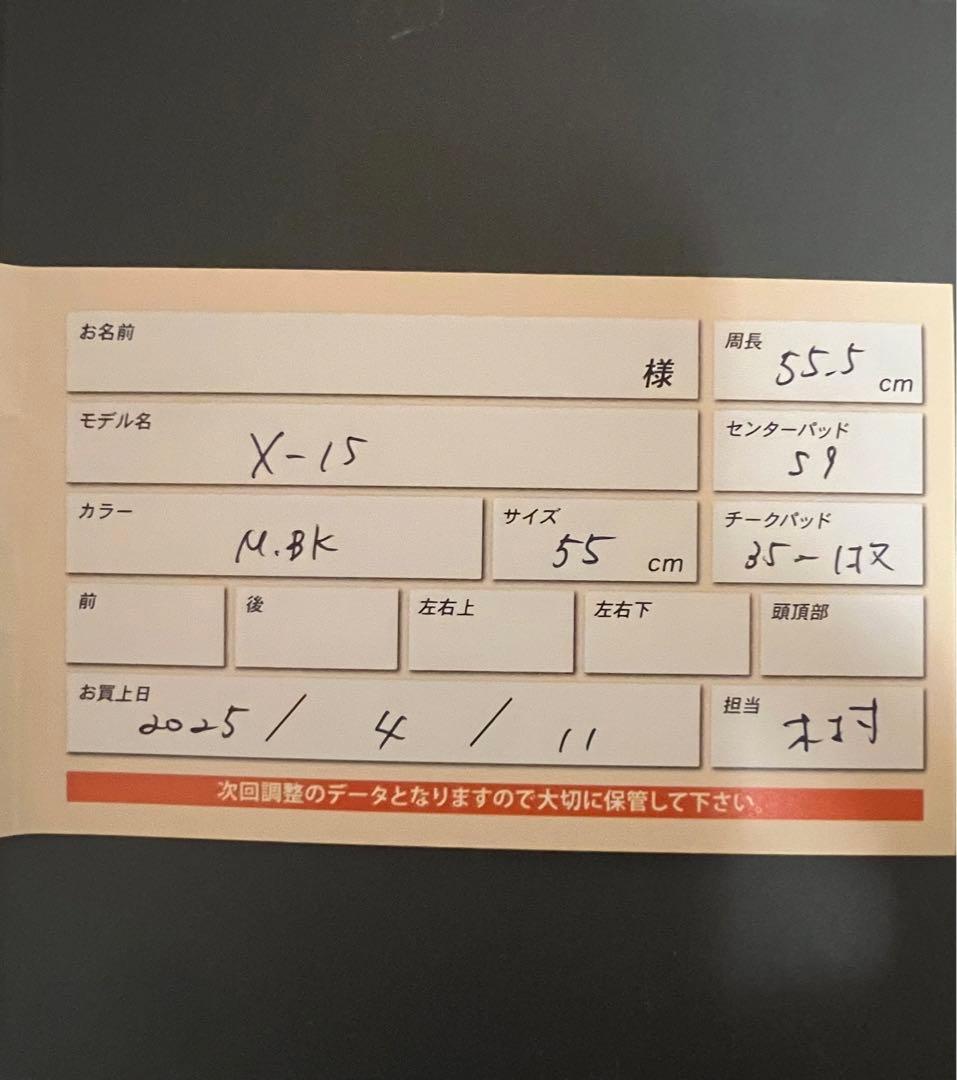 お名前
様
周長
55.5 cm
モデル名
X-15
センターパッド
S9
カラー
M.BK
サイズ
55 cm
チークパッド
35-1枚
前
後
左右上
左右下
頭頂部
お買上日
2025/4/11
担当
木村
次回調整のデータとなりますので大切に保管して下さい。